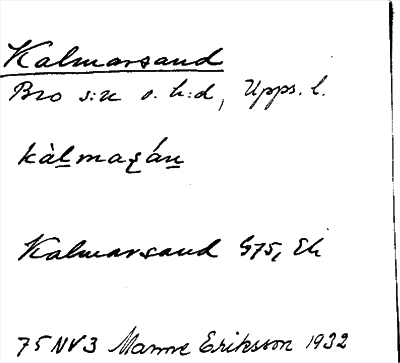 Kalmarsand
Bro s:n o. h:d, Upps. l.
kàlmaʂán
Kalmarsand G75, Ek
75 NV3 Manne Eriksson 1932